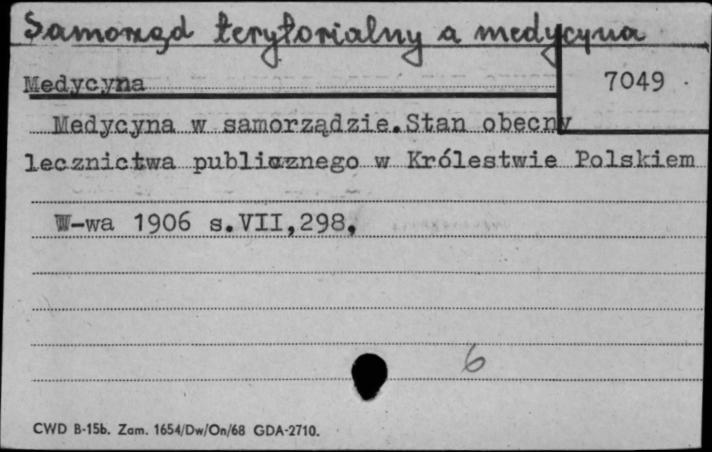 Samorząd terytorialny a medycyna
Medycyna
7049
Medycyna w samorządzie.Stan obecny
lecznictwa publicznego w Królestwie Polskiem
W-wa 1906 s.VII,298,
6
CWD B-15b. Zam. 1654/Dw/On/68 GDA-2710.